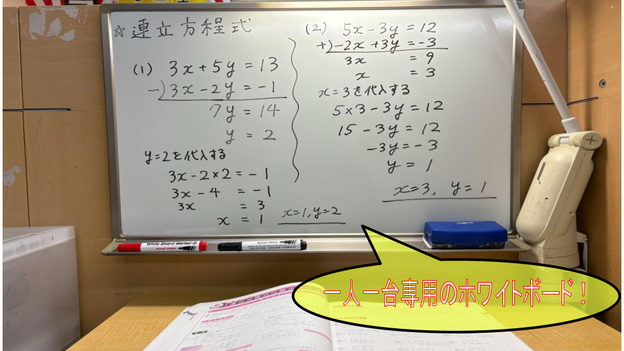 ☆連立方程式
(1) 3x+5y=13
−) 3x−2y=−1
7y=14
y=2
y=2を代入する
3x−2×2=−1
3x−4=−1
3x=3
x=1
x=1, y=2
(2) 5x−3y=12
+) −2x+3y=−3
3x=9
x=3
x=3を代入する
5×3−3y=12
15−3y=12
−3y=−3
y=1
x=3, y=1
一人一台専用のホワイトボード！